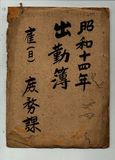 昭和十四年
出勤簿
雇(自)
庶務課